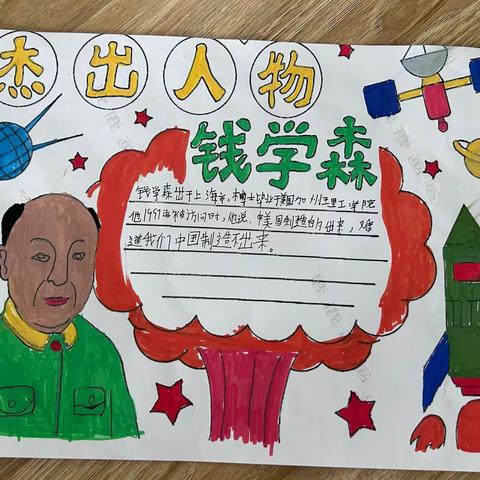 杰出人物
钱学森
钱学森出于上海市,博士毕业于美国加州理工学院
他1991年被访问时,他说,美国制造的出来,难
道我们中国制造不出来。